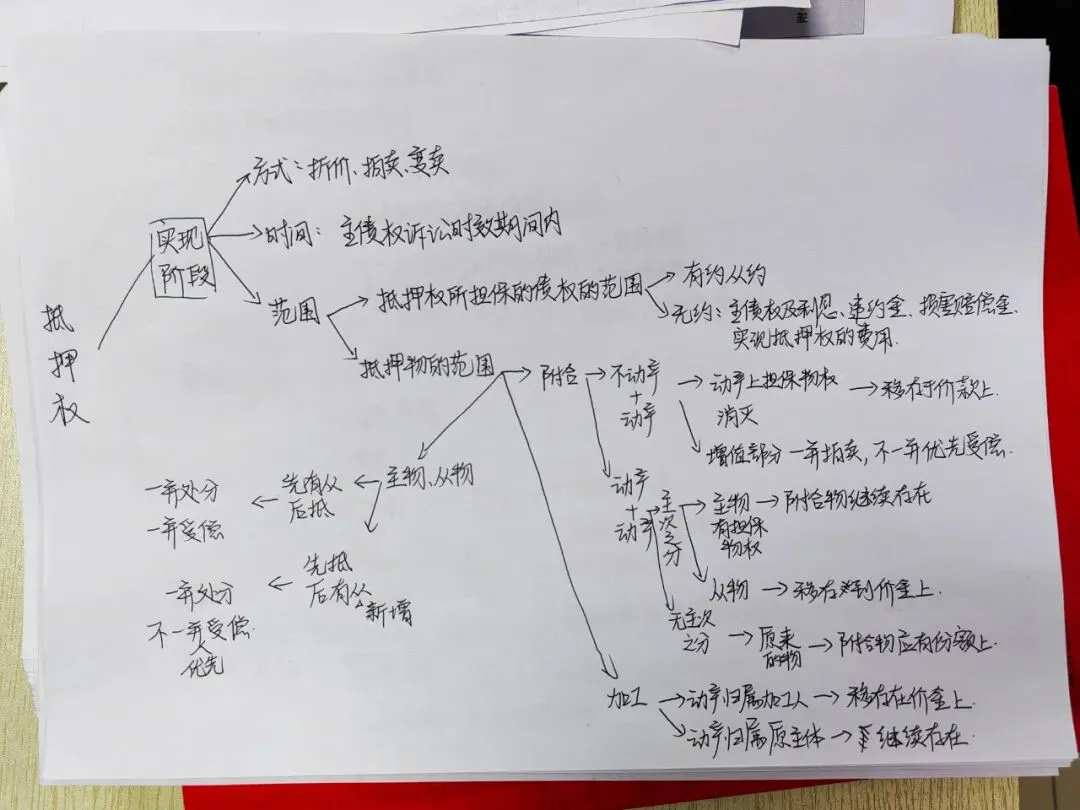 抵押权
实现阶段
方式：折价、拍卖、变卖
时间：主债权诉讼时效期间内
范围
抵押权所担保的债权的范围
有约从约
无约：主债权及利息、违约金、损害赔偿金、
实现抵押权的费用
抵押物的范围
附合
不动产
+
动产
动产上担保物权
消灭
移存于价款上
增值部分一并拍卖，不一并优先受偿
动产
+
动产
主次之分
主物
有担保
物权
附合物继续存在
从物
移存到价金上
无主次
之分
原来
的物
附合物应有份额上
主物、从物
先有从
后抵
一并处分
一并受偿
先抵
后有从
新增
一并处分
不一并受偿
优先
加工
动产归属加工人
移存在价金上
动产归属原主体
继续存在